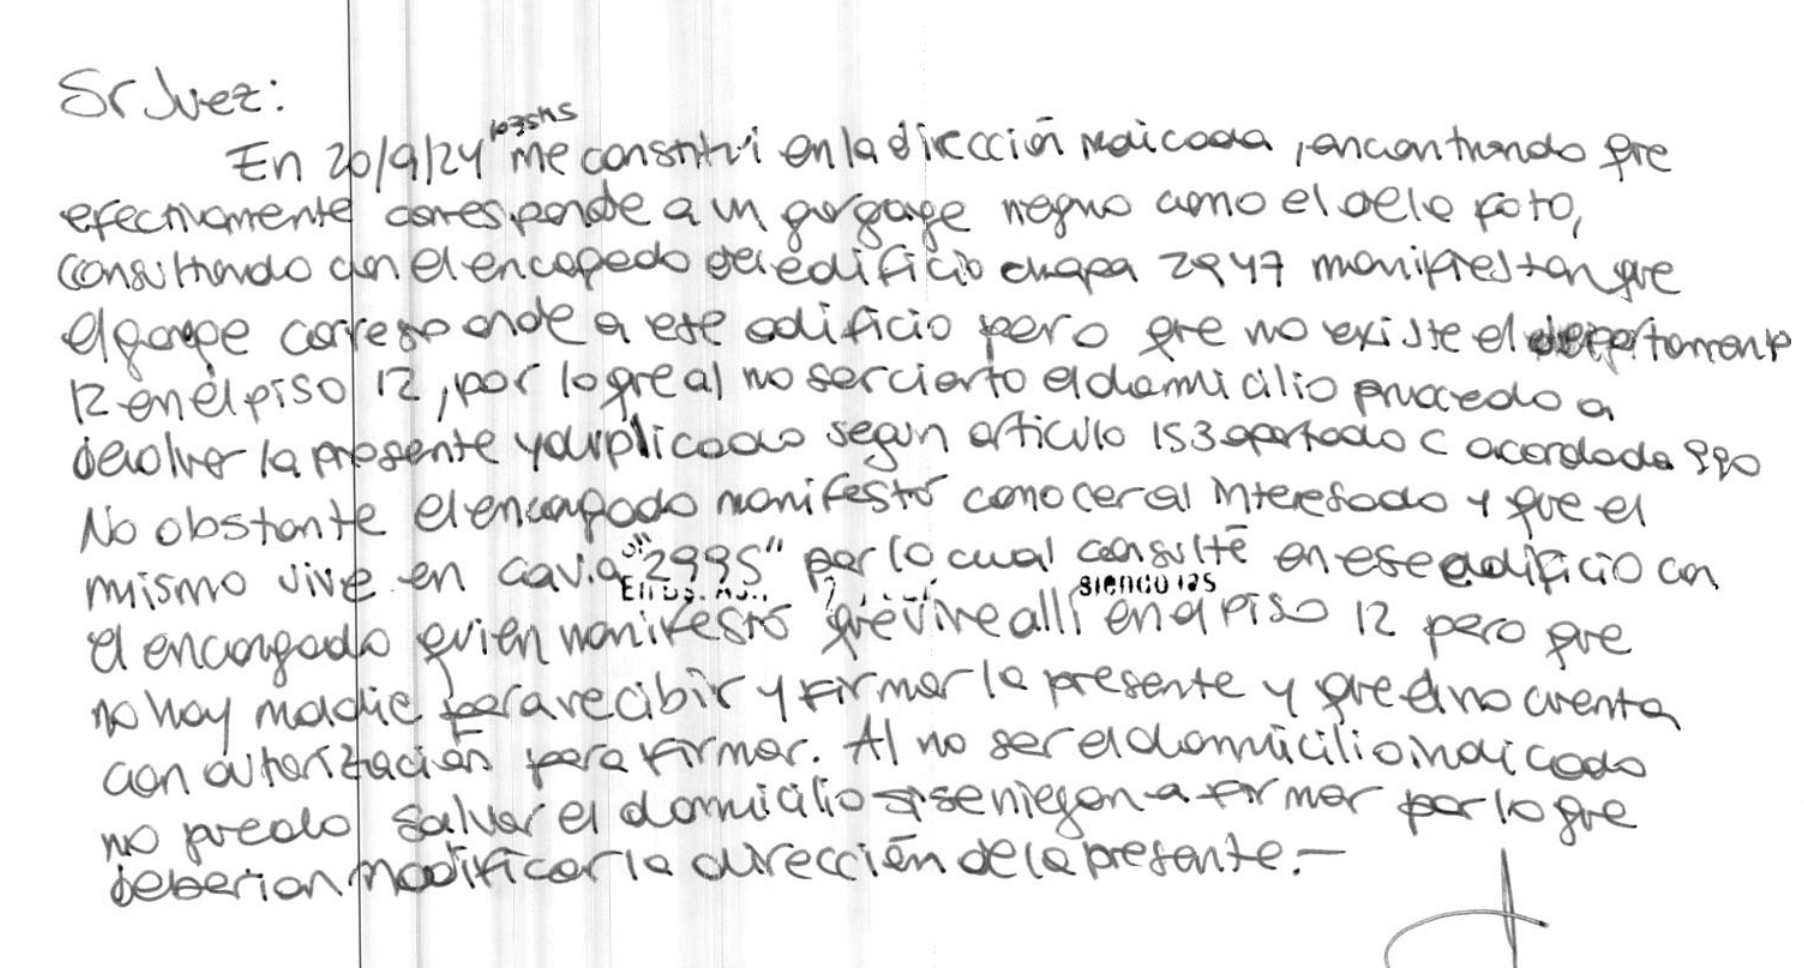 Sr Juez:
En 20/9/24 1035hs me constituí en la dirección indicada, encontrando que
efectivamente corresponde a un gargage negro como el de la foto,
consultando con el encargado del edificio chapa 2947 manifiestan que
el garage corresponde a ese edificio pero que no existe el departamento
12 en el piso 12, por lo que al no ser cierto el domicilio procedo a
devolver la presente y duplicado según artículo 153 apartado C acordada 990
No obstante el encargado manifestó conocer al interesado y que el
mismo vive en cavia "2995" por lo cual consulté en ese edificio con
Siendo las
el encargado quien manifestó que vive allí en el piso 12 pero que
no hay nadie para recibir y firmar la presente y que él no cuenta
con autorización para firmar. Al no ser el domicilio indicado
no puedo salvar el domicilio si se niegan a firmar por lo que
deberian modificar la dirección de la presente.-